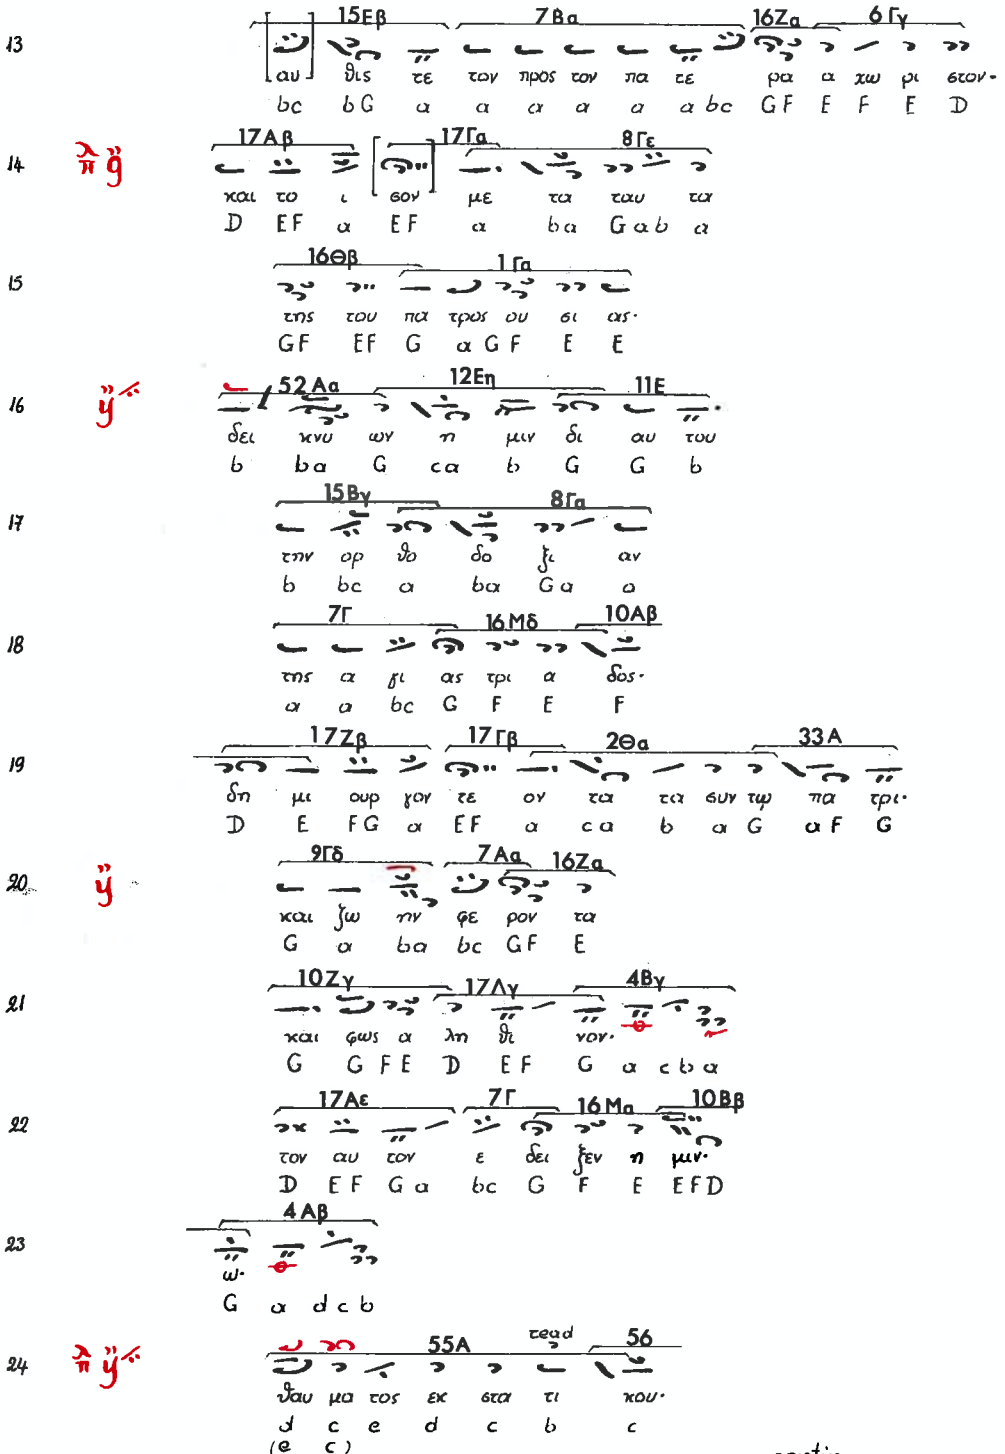 15Εβ 7Βα 16Ζα 6Γγ
13 [αυ] θις τε τον προς τον πα τε ρα α χω ρι στον·
bc bG a a a a a a bc GF E F E D
17Αβ 17Γα 8Γε
14 και το ι [σον] με τα ταυ τα
D EF a EF a ba Gab a
16Θβ 1Γα
15 της του πα τρος ου σι ας·
GF EF G a GF E E
52Αα 12Εη 11Ε
16 δει κνυ ων η μιν δι αυ του
b ba G ca b G G b
15Βγ 8Γα
17 την ορ θο δο ξι αν
b bc a ba Ga a
7Γ 16Μδ 10Αβ
18 της α γι ας τρι α δος·
a a bc G F E F
17Ζβ 17Γβ 2Θα 33Α
19 δη μι ουρ γον τε ον τα τα συν τω πα τρι·
D E FG a EF a ca b a G aF G
9Γδ 7Αα 16Ζα
20 και ζω ην φε ρον τα
G a ba bc GF E
10Ζγ 17Λγ 4Βγ
21 και φως α λη θι νον·
G G FE D EF G a cba
17Αε 7Γ 16Μα 10Ββ
22 τον αυ τον ε δει ξεν η μιν·
D EF Ga bc G F E EFD
4Αβ
23 ω·
G a dcb
55Α read 56
24 θαυ μα τος εκ στα τι κου·
d c e d c b c
(e c)